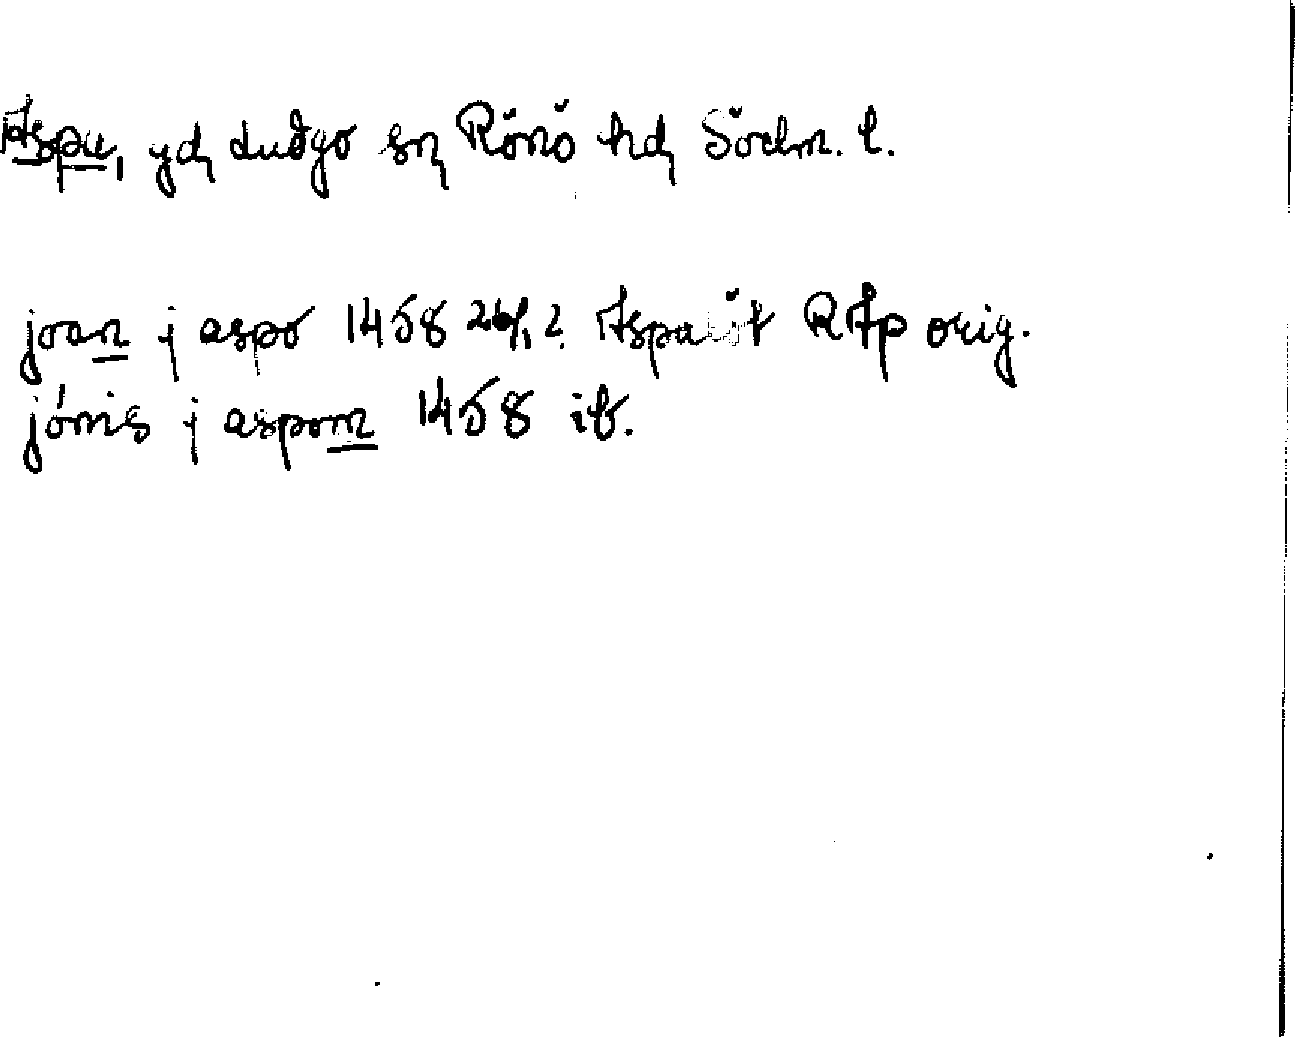 Aspa, gd, Ludgo sn, Rönö hd, Södm. l.
joan j aspo 1458 26/1 2. Aspalöt RAp orig.
jónis j aspom 1458 ib.